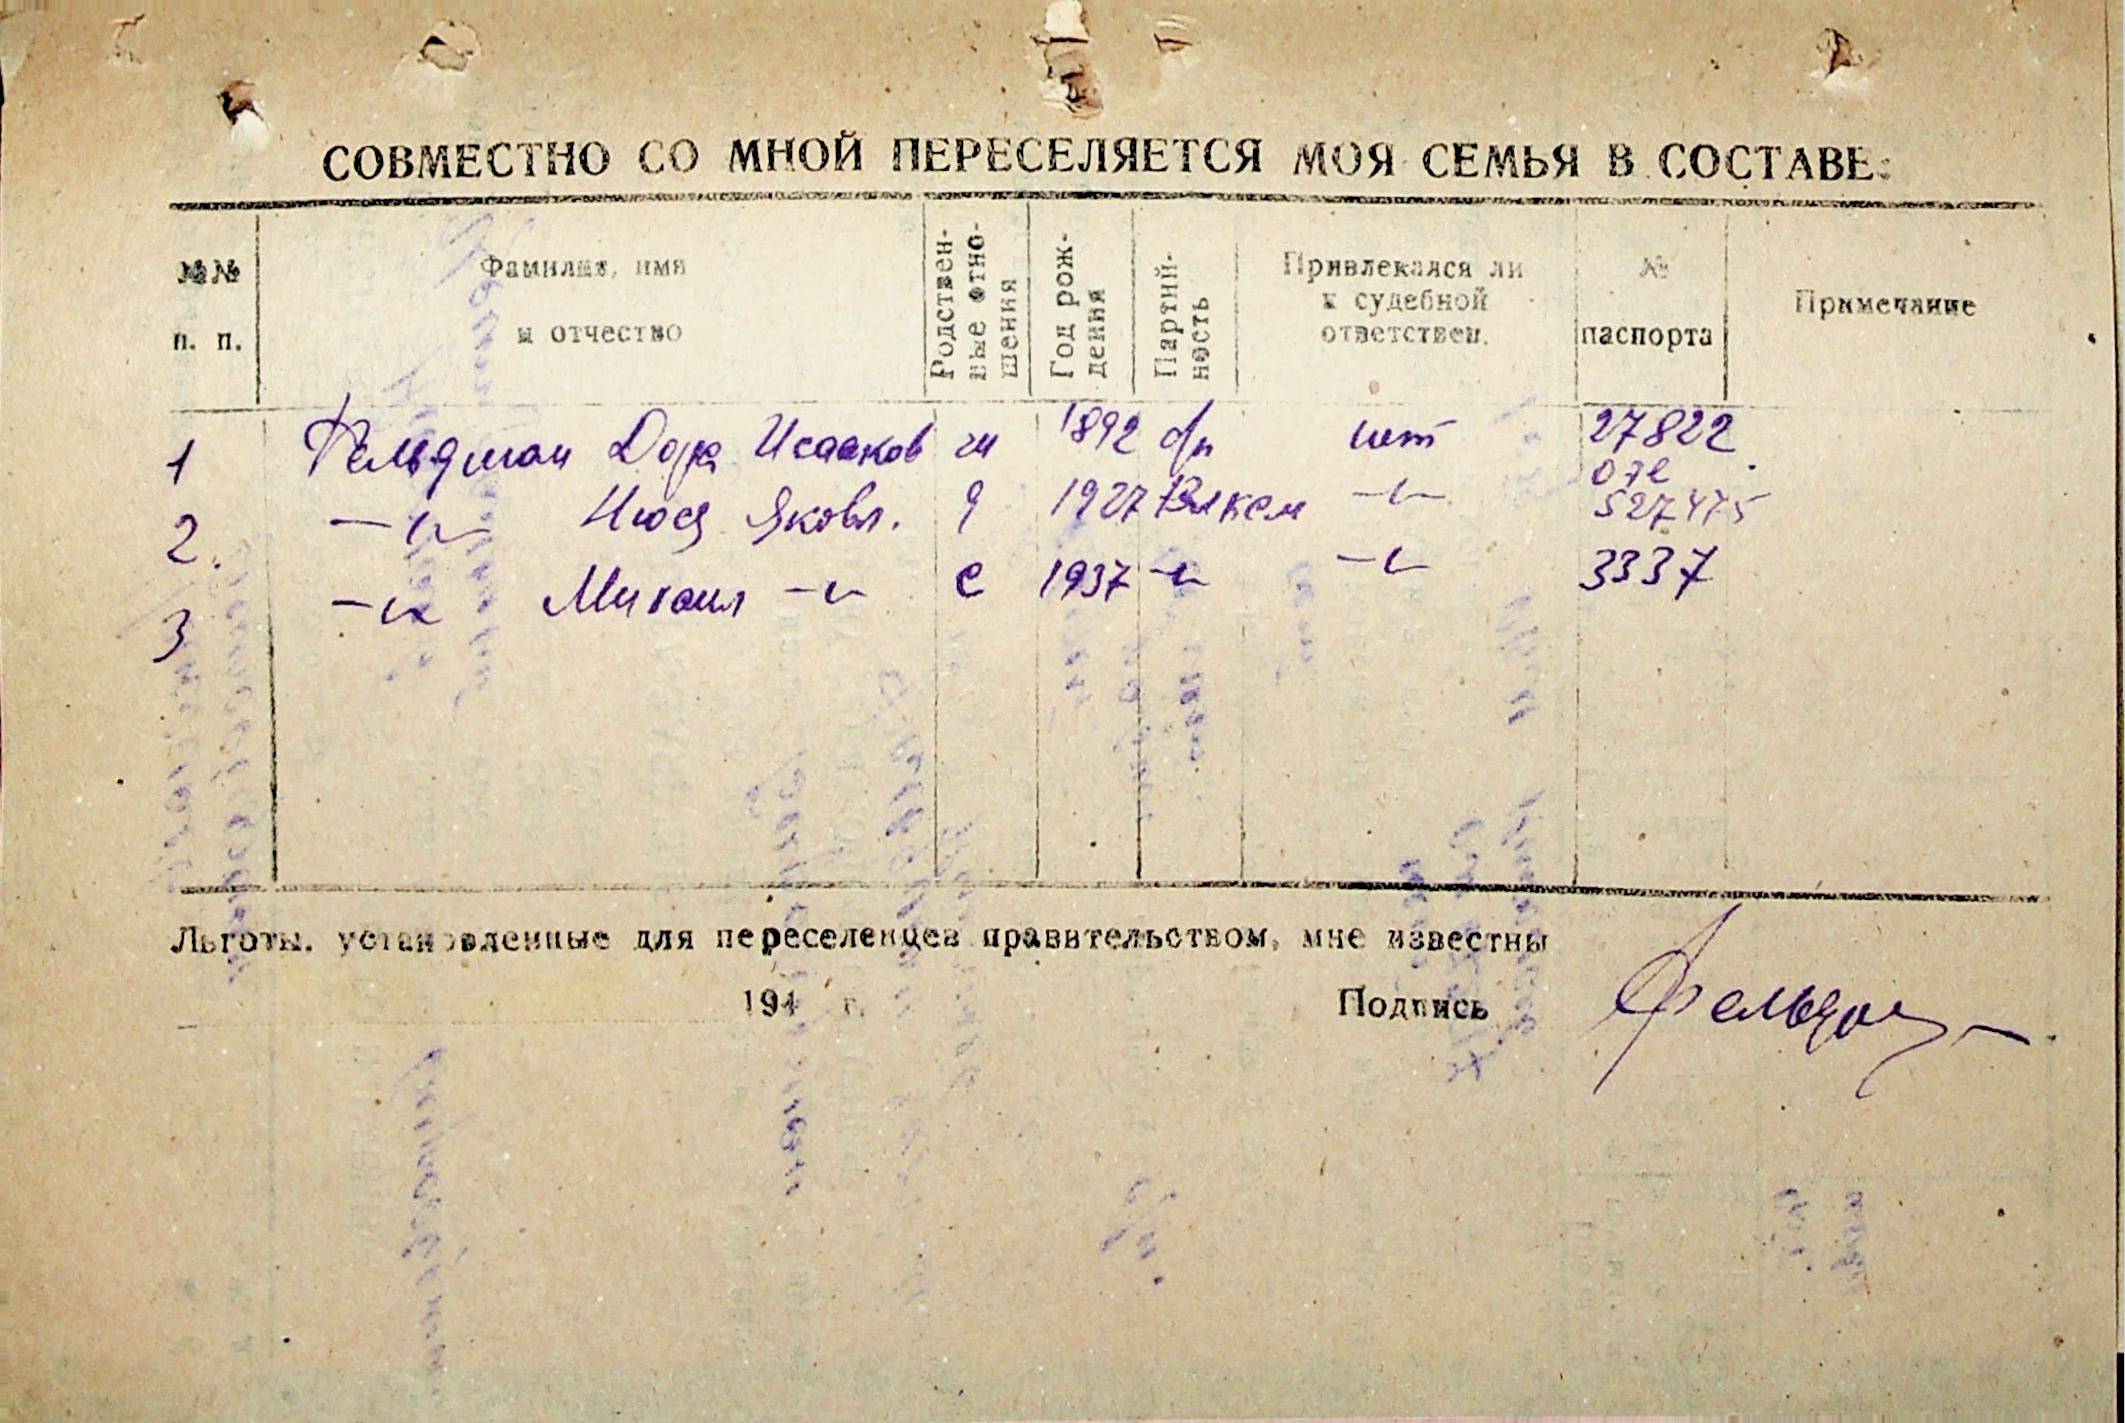 СОВМЕСТНО СО МНОЙ ПЕРЕСЕЛЯЕТСЯ МОЯ СЕМЬЯ В СОСТАВЕ:
№№ п. п.
Фамилия, имя и отчество
Родственные отношения
Год рождения
Партийность
Привлекался ли к судебной ответствен.
№ паспорта
Примечание
1 Фельдман Дора Исааков 1892 бп нет 27822
2. —"— Нюся Яковл. д 1927 —"— 527475
3 —"— Михаил —"— с 1937 —"— —"— 3337
Льготы, установленные для переселенцев правительством, мне известны
194 г. Подпись